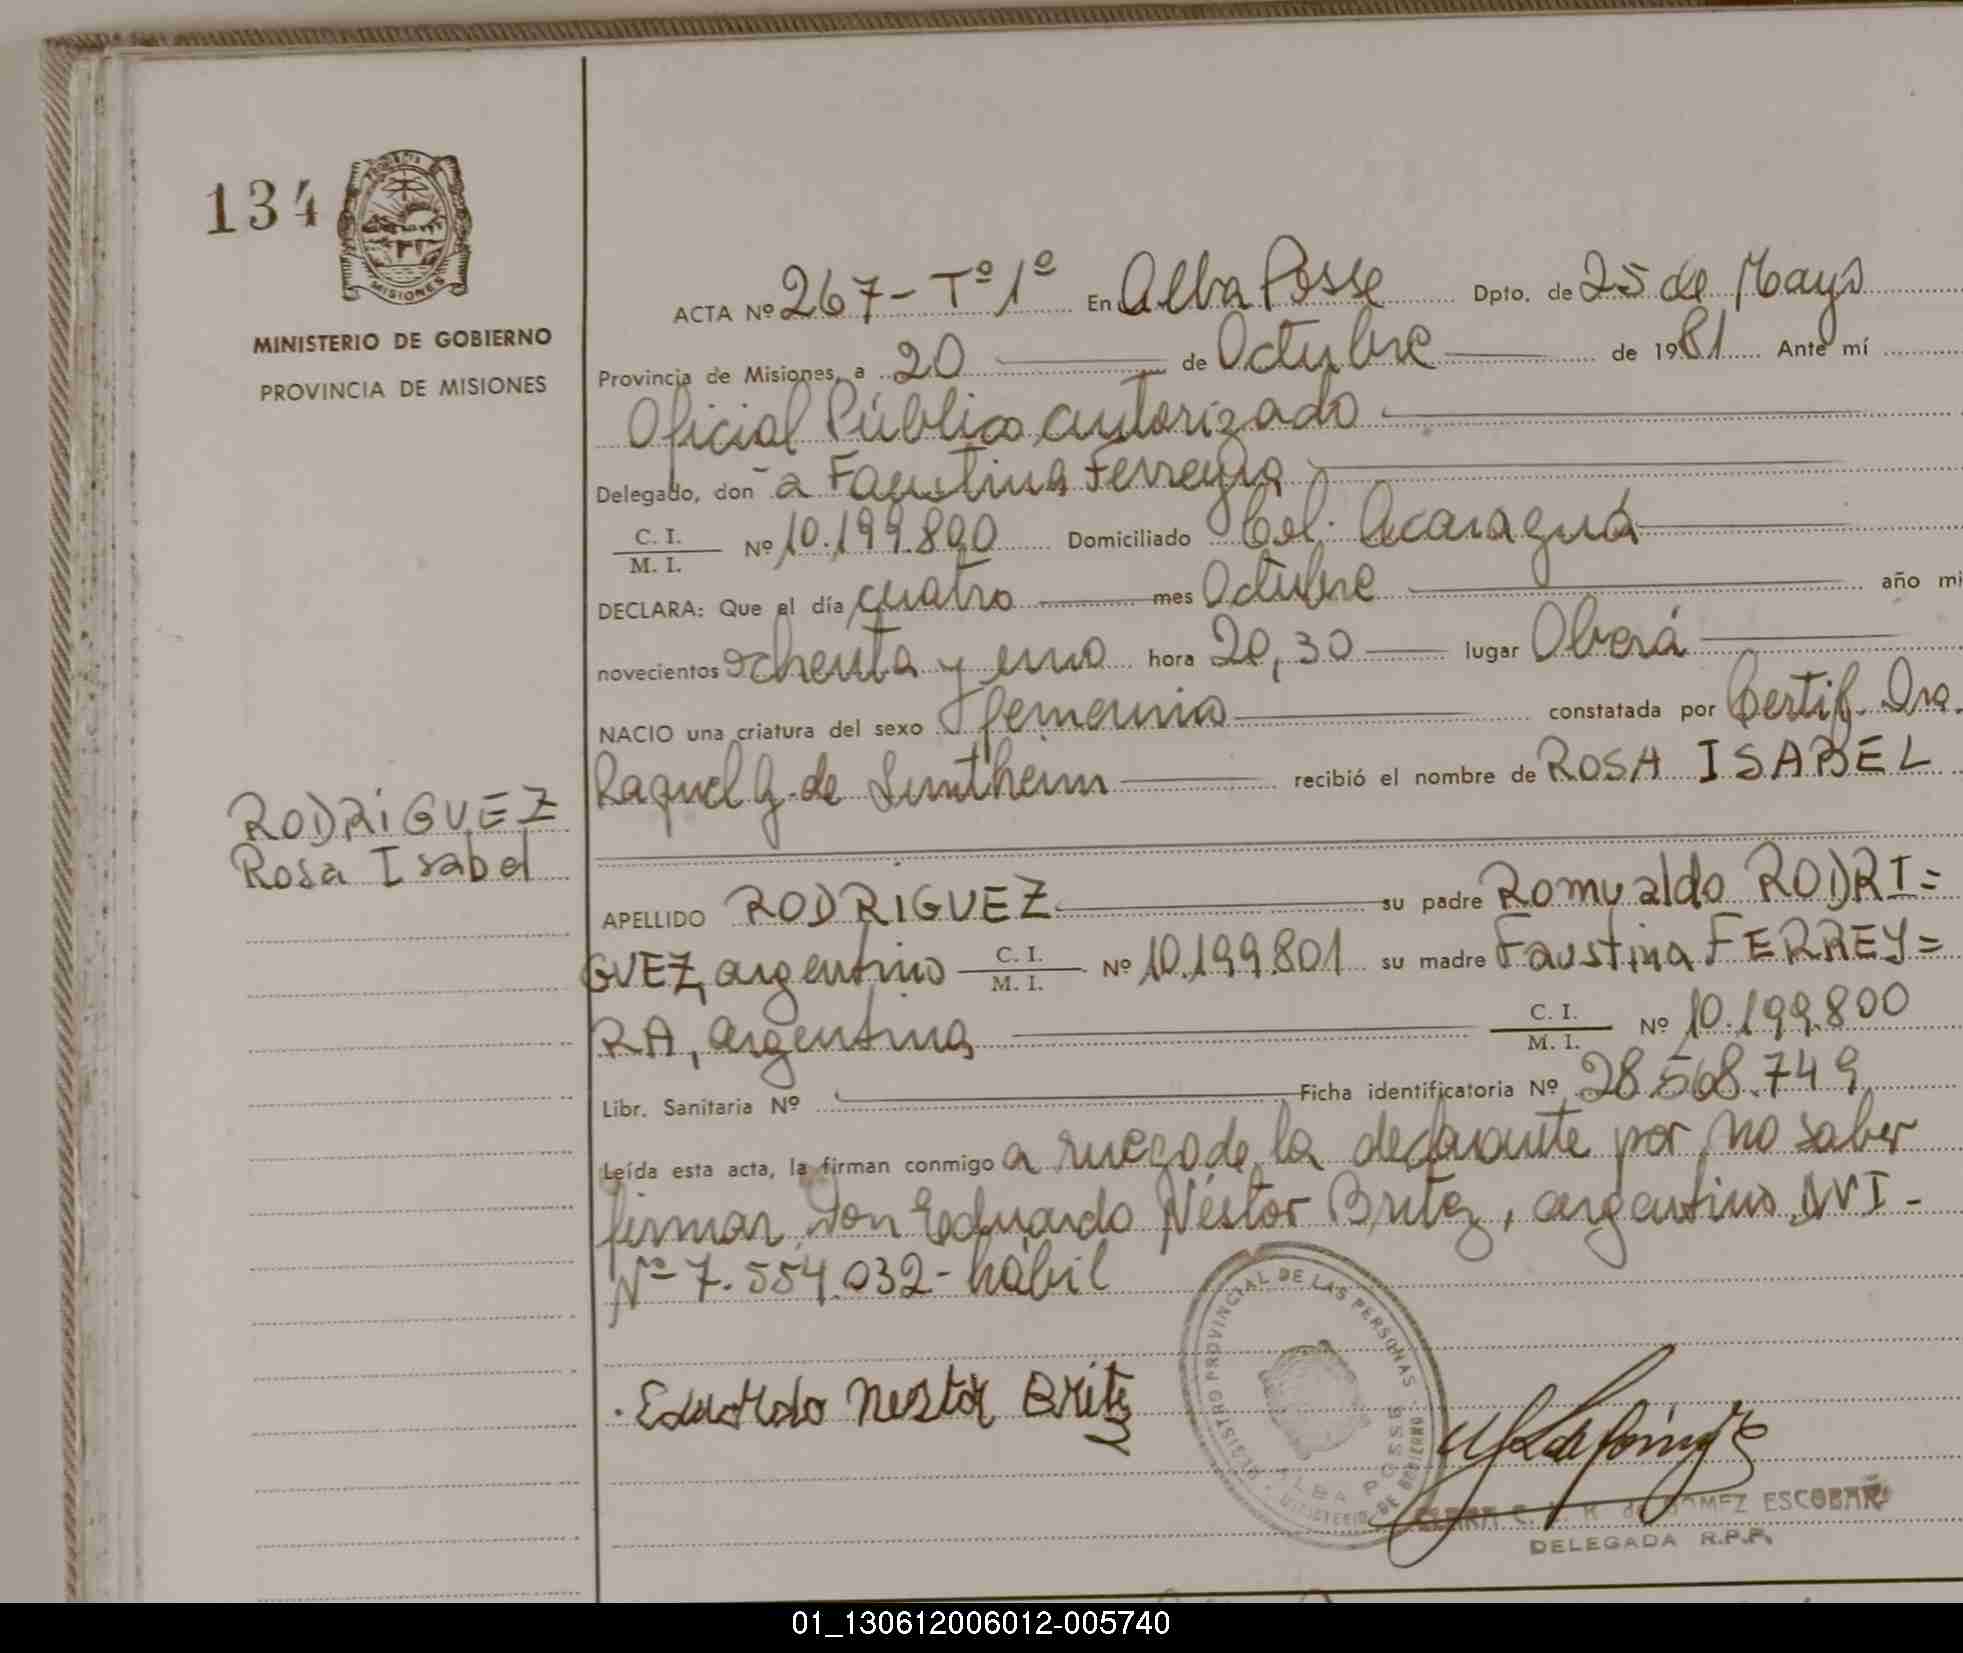 134
MISIONES
MINISTERIO DE GOBIERNO
PROVINCIA DE MISIONES
RODRIGUEZ
Rosa Isabel
ACTA Nº 267 - Tº 1º En Alba Posse Dpto. de 25 de Mayo
Provincia de Misiones, a 20 de Octubre de 1981 Ante mí
Oficial Público autorizado
Delegado, don a Faustina Ferreyra
C. I.
M. I. Nº 10.199.800 Domiciliado Col. Acaraguá
DECLARA: Que el día cuatro mes Octubre año mi
novecientos ochenta y uno hora 20,30 lugar Oberá
NACIO una criatura del sexo femenino constatada por Certif. Dra.
Raquel G. de recibió el nombre de ROSA ISABEL
APELLIDO RODRIGUEZ su padre Romualdo RODRI=
GUEZ, argentino C. I. M. I. Nº 10.199.801 su madre Faustina FERREY=
RA, argentina C. I. M. I. Nº 10.199.800
Libr. Sanitaria Nº Ficha identificatoria Nº 28.568.749
Leída esta acta, la firman conmigo a ruego de la declarante por no saber
firmar, don Eduardo Néstor Britez, argentino, DNI -
Nº 7.554.032 - hábil
Eduardo Nestor Britez
REGISTRO PROVINCIAL DE LAS PERSONAS
ALBA POSSE
MINISTERIO DE GOBIERNO
de GOMEZ ESCOBAR
DELEGADA R.P.P.
01_130612006012-005740